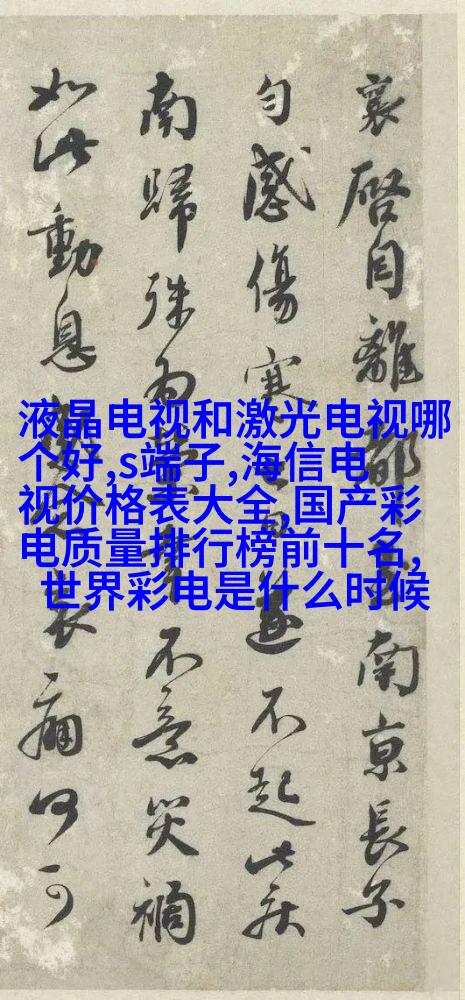 液晶电视和激光电视哪
个好,s端子,海信电
视价格表大全,国产彩
电质量排行榜前十名,
世界彩电是什么时候
襄啓自離都南京長子
匀感傷寒遂不起此疾
南歸殊為幸不意災禍
如此動息哀痛何可